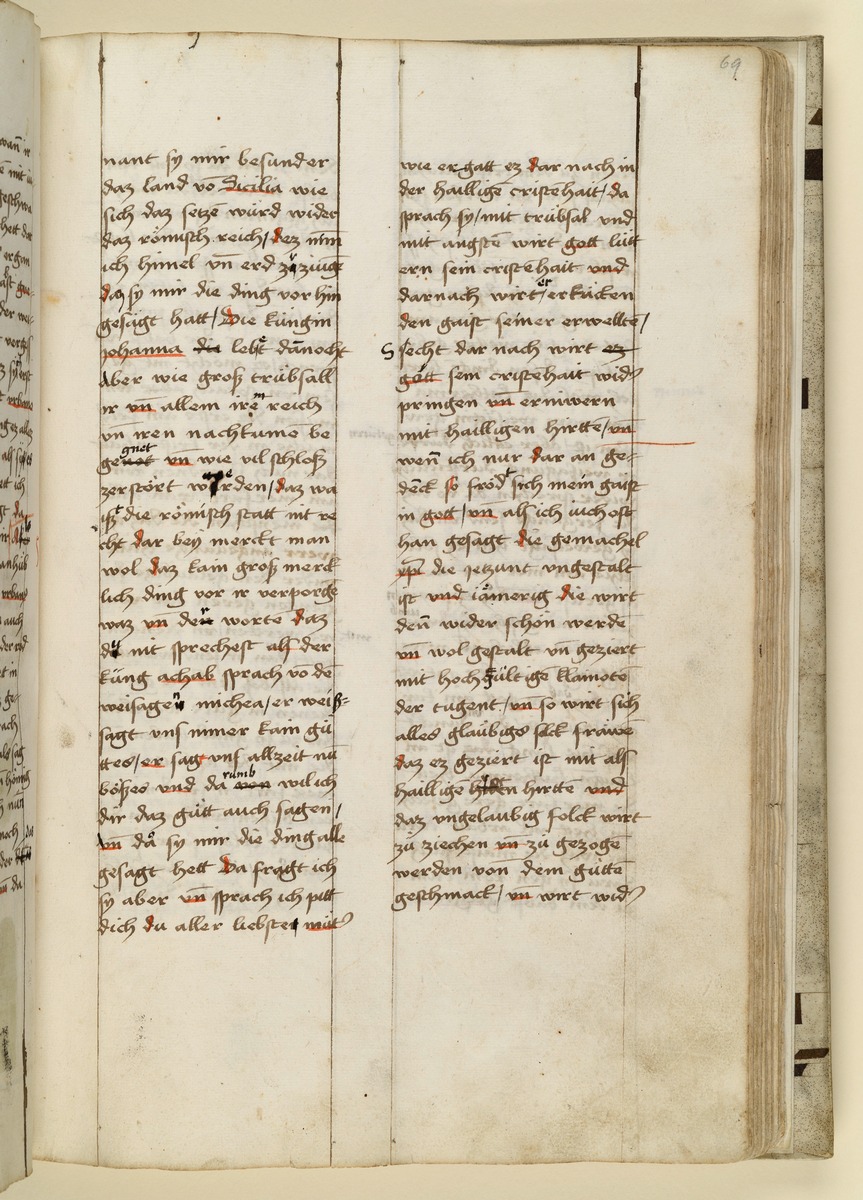 69
nant sy mir besunder
daz land vō Sicilia wie
sich daz setzē würd wider
daz römisch reich / dez nīm
ich himel vn̄ erd zů ziugē
daz sy mir die ding vor hin
gesagt hatt / Die küngin
johanna die lebt dānocht
Aber wie groß trübsall
ir vn̄ allem irem reich
vn̄ iren nachkumē be
gegnet vn̄ wie vil schloß
zerstört werden / daz wa
iß die römisch statt nit re
cht dar bey merckt man
wol daz kain groß merck
lich ding vor ir verporgē
waz vn̄ der worte daz
du nit sprechest als der
küng achab sprach vō dē
weisagen michea / er weiß
sagt vns nimer kain gů
ttes / er sagt vns allzeit nū
böses vnd da rumb wil ich
dir daz gůtt auch sagen /
vn̄ da sy mir die ding alle
gesagt hett Da fragt ich
sy aber vn̄ sprach ich pitt
dich du aller liebste můt
wie er gatt ez dar nach in
der hailligē cristēhait / da
sprach sy / mit trübsal vnd
mit angstē wirt gott lütt
ern sein cristēhait vnd
darnach wirt er erkücken
den gaist seiner erweltē /
secht dar nach wirt ez
gott sein cristēhait wid
pringen vn̄ ernuwern
mit hailligen hirttē / vn̄
wen̄ ich nur dar an ge-
denck so fröd sich mein gaist
in gott / vn̄ als ich iuch oft
han gesagt die gemachel
xpī die jetzunt vngestalt
ist vnd iamerig die wirt
den̄ wider schön werdē
vn̄ wol gestalt vn̄ geziert
mit hochgültigē klainotē
der tugent / vn̄ so wirt sich
alles glaubigs folck fräwē
daz ez geziert ist mit als
hailligē hirtten vnd
daz vngelaubig folck wirt
zů ziechen vn̄ zů gezogē
werden von dem gůttē
geschmack / vn̄ wirt wid